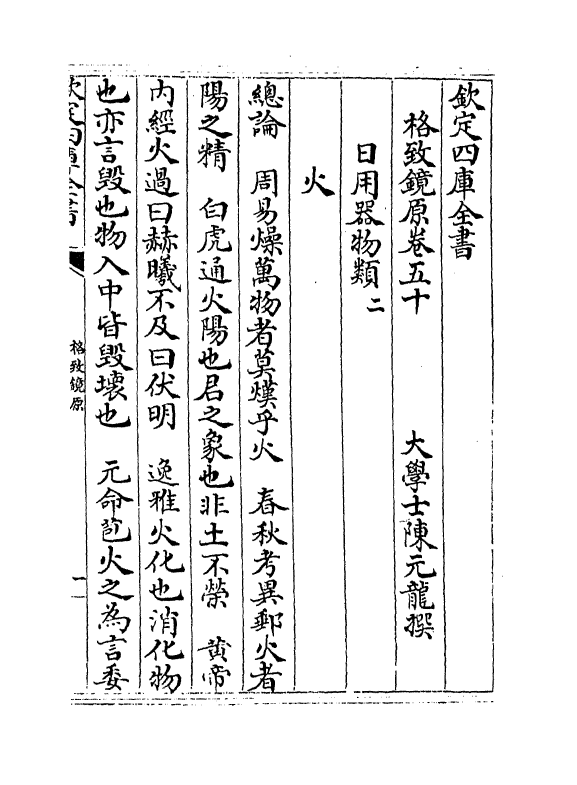 欽定四庫全書
格致鏡原卷五十
大學士陳元龍撰
日用器物類二
火
總論　周易燥萬物者莫熯乎火　春秋考異郵火者
陽之精　白虎通火陽也君之象也非土不榮　黄帝
内經火過曰赫曦不及曰伏明　逸雅火化也消化物
也亦言毁也物入中皆毁壞也　元命苞火之為言委
欽定四庫全書
格致鏡原
一